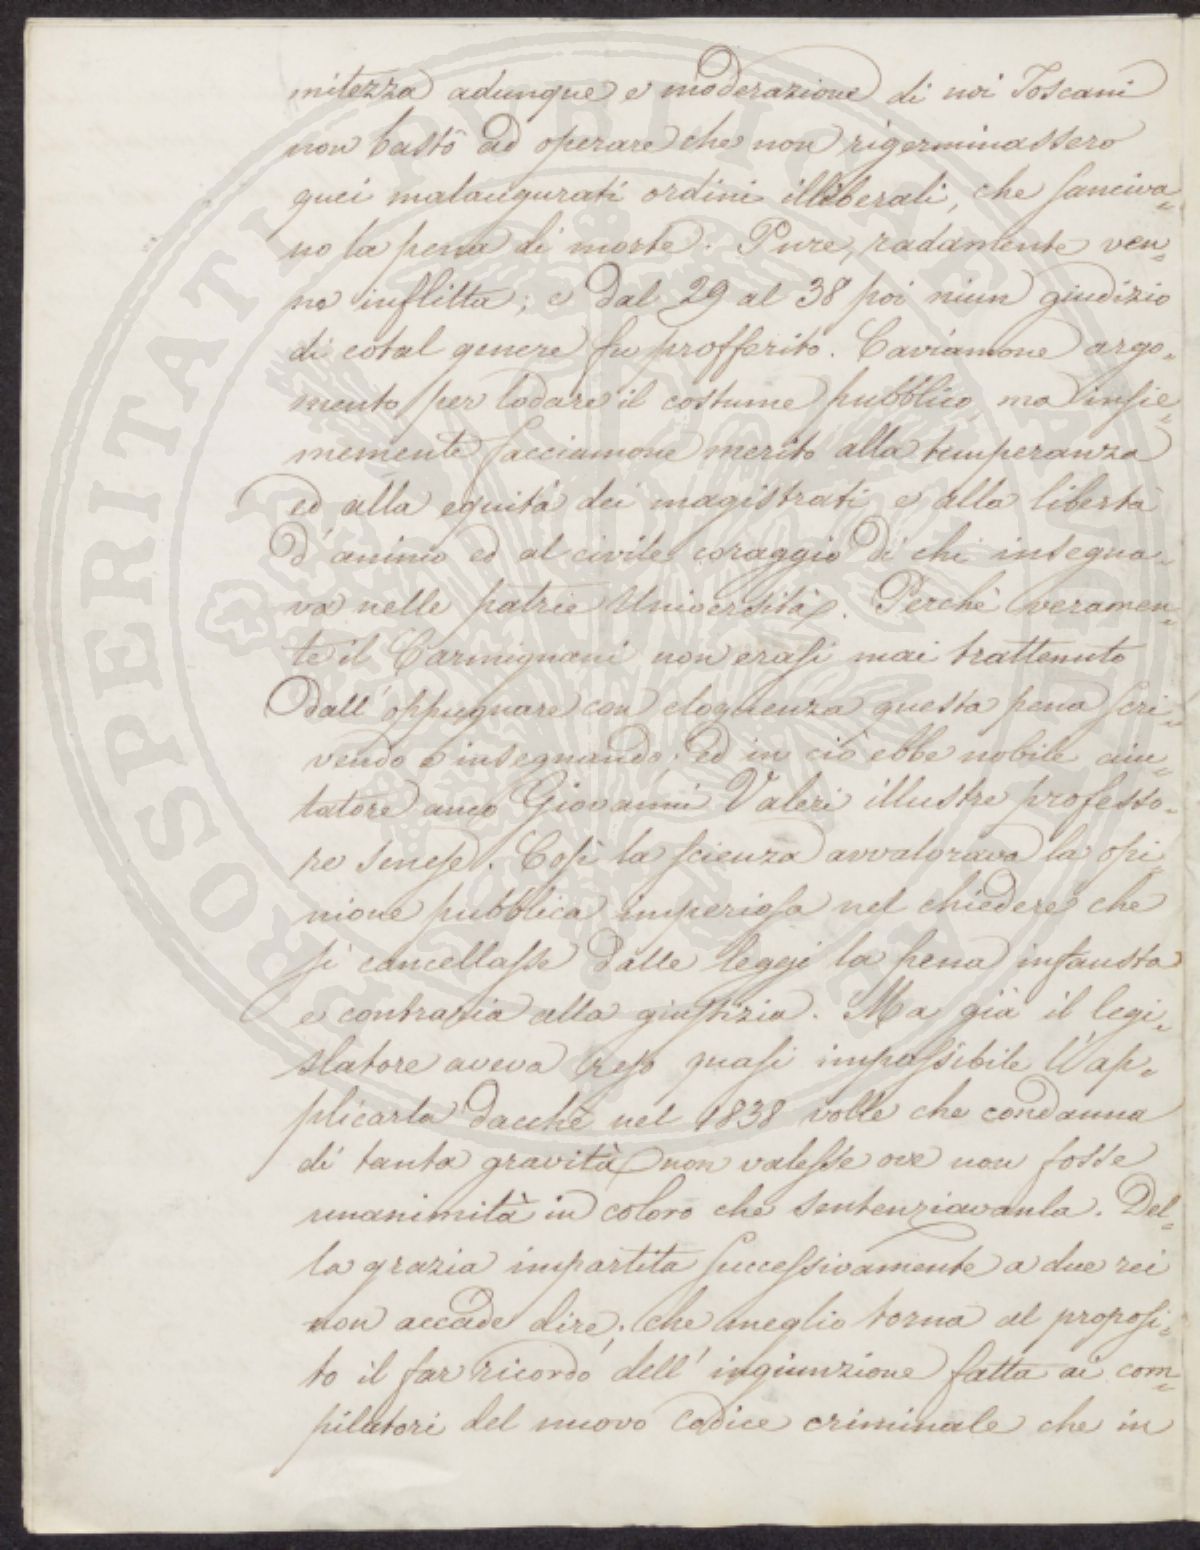 mitezza adunque e moderazione di noi Toscani
non bastò ad operare che non rigerminassero
quei malaugurati ordini illiberali, che sanciva=
no la pena di morte. Pure, radamente ven=
ne inflitta; e dal 29 al 38 poi niun giudizio
di cotal genere fu profferito. Caviamone argo=
mento per lodare il costume pubblico, ma insie=
memente facciamone merito alla temperanza
ed alla equità dei magistrati e alla libertà
d'animo ed al civile coraggio di chi insegna=
va nelle patrie Università. Perchè veramen=
te il Carmignani non erasi mai trattenuto
dall'oppugnare con eloquenza questa pena scri=
vendo e insegnando; ed in ciò ebbe nobile aiu=
tatore anco Giovanni Valeri illustre professo=
re senese. Così la scienza avvalorava la opi=
nione pubblica imperiosa nel chiedere che
si cancellasse dalle leggi la pena infausta
e contraria alla giustizia. Ma già il legi=
slatore aveva reso quasi impossibile l'ap=
plicarla dacchè nel 1838 volle che condanna
di tanta gravità non valesse ove non fosse
unanimità in coloro che sentenziavanla. Del=
la grazia impartita successivamente a due rei
non accade dire; che meglio torna al proposi=
to il far ricordo dell'ingiunzione fatta ai com=
pilatori del nuovo codice criminale che in
PROSPERITATI PUBLICAE AUGENDAE